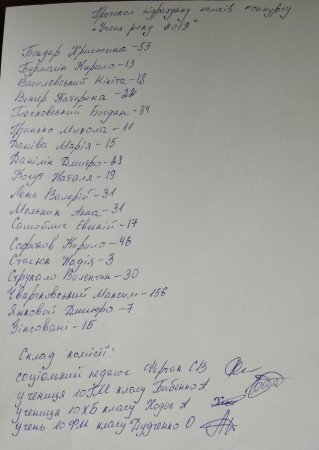 Протокол підрахунку голосів конкурсу
"Учень року 2019"
Бондар Христина - 53
Бурмайн Кирило - 13
Василевський Нікіта - 18
Венгер Катерина - 22
Глочковський Богдан - 34
Гринько Микола - 11
Даніва Марія - 15
Данілін Дмитро - 23
Когут Наталя - 19
Лень Валерій - 31
Мельник Анна - 31
Самойлич Євгеній - 17
Сафонов Кирило - 46
Стасюк Надія - 3
Струкало Валентин - 30
Чвартковський Максим - 156
Янковой Дмитро - 7
Зіпсовані - 15
Склад комісії:
соціальний педагог - Фертак С В
учениця 10 ГМ класу Бабенко А
учениця 10 ХБ класу Ходос А
учень 10 ФМ класу Дудченко О